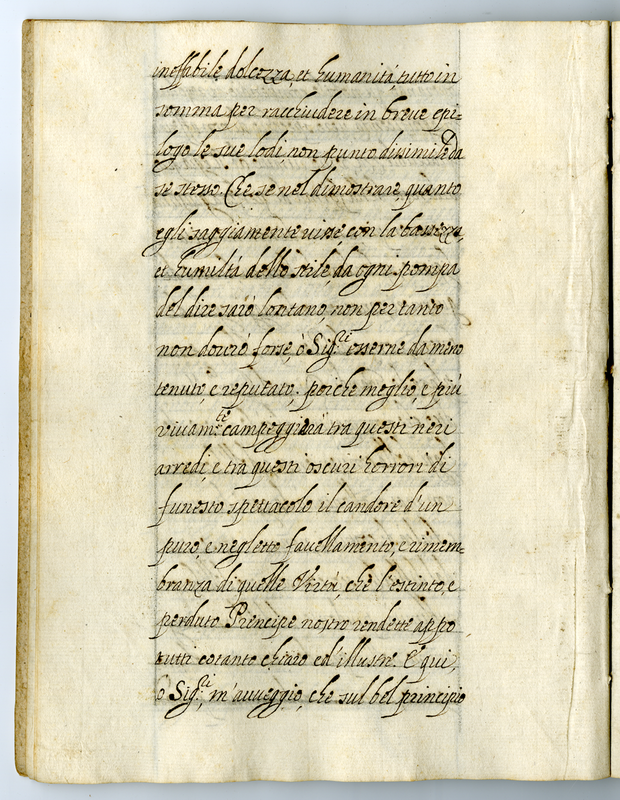 ineffabile dolcezza, et humanità, tutto in
somma per racchiudere in breve epi=
logo le sue lodi, non punto dissimile da
se stesso. Che se nel dimostrare, quanto
egli saggiamente visse, con la bassezza,
et humiltà dello stile, da ogni pompa
del dire sarò lontano, non per tanto
non dovrò forse, ò Sig.ri esserne da meno
tenuto, e reputato, poiche meglio, e più
vivam.te campeggierà tra questi neri
arredi, e tra questi oscuri horrori di
funesto spettacolo il candore d'un
puro, e negletto favellamento, e rimem=
branza di quelle Virtù, che l'estinto, e
perduto Prencipe nostro rendette appo
tutti cotanto chiaro ed' illustre. E qui,
ò Sig.ri, m'avveggio, che sul bel principio